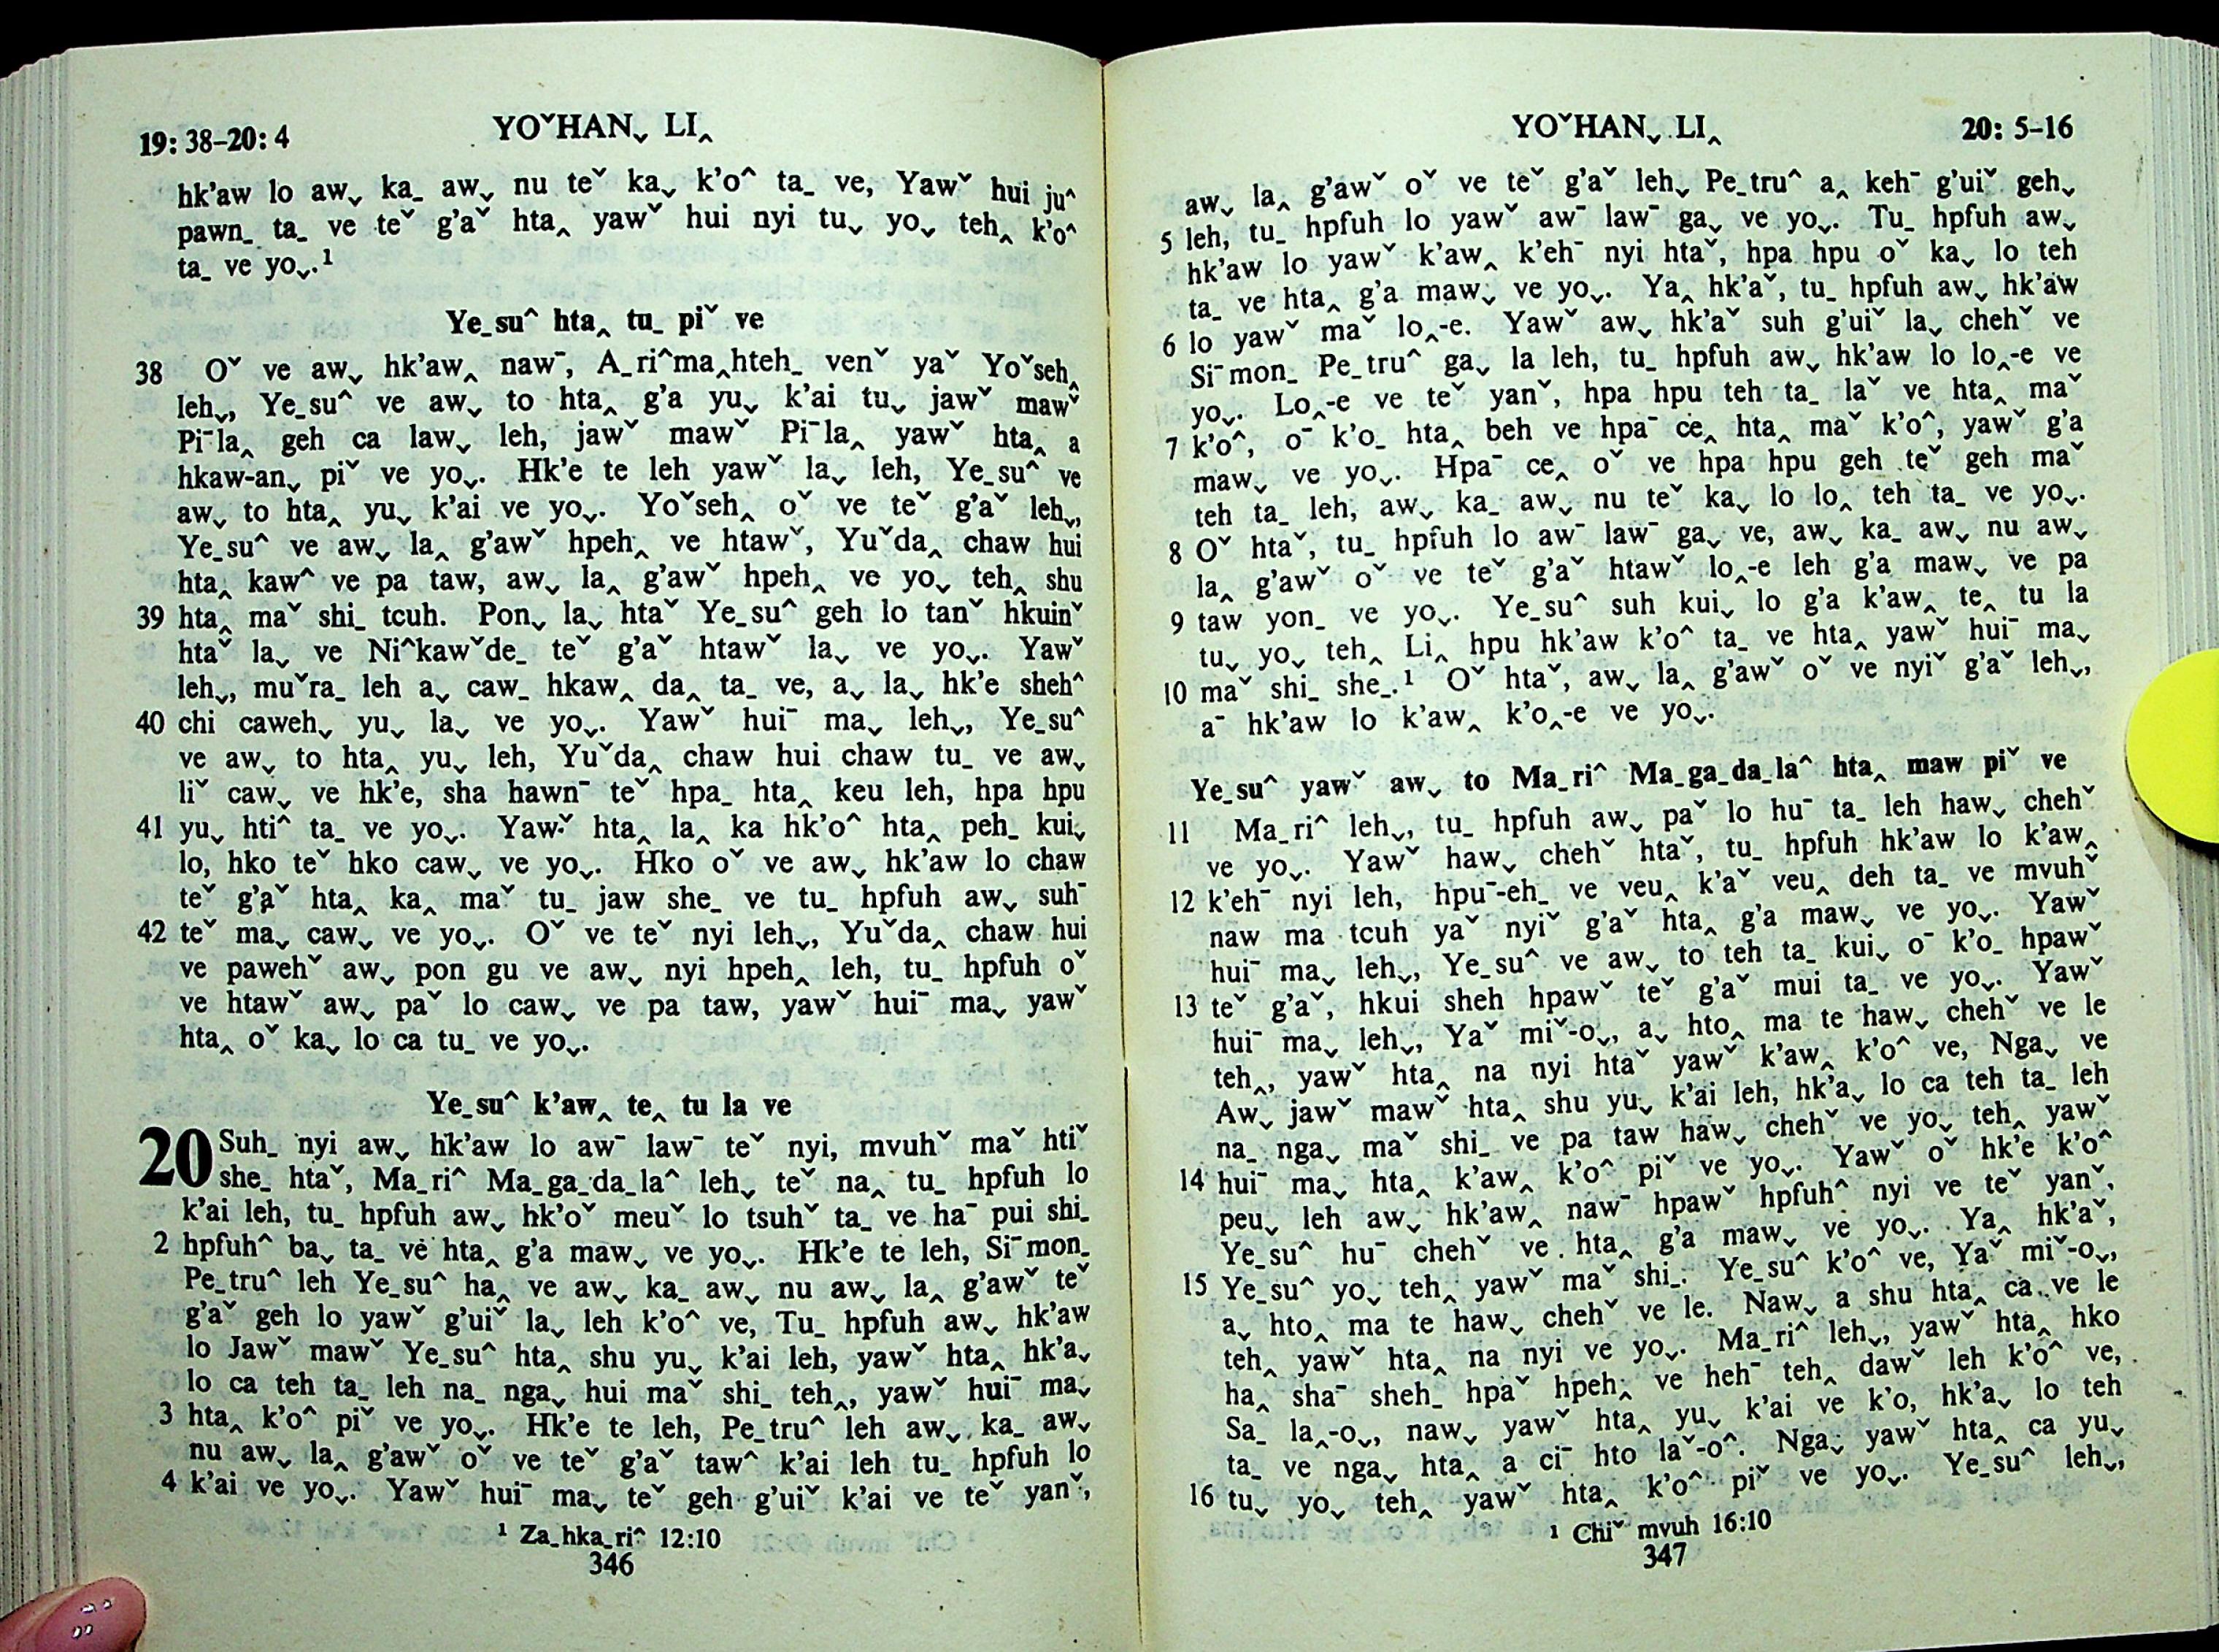 19: 38–20: 4
YOˇHANˬ LI‸
hk'aw lo awˬ kaˍ awˬ nu teˇ kaˬ k'o^ taˍ ve, Yawˇ hui ju^
pawnˍ taˍ ve teˇ g'aˇ hta‸ yawˇ hui nyi tuˬ yoˬ teh‸ k'o^
taˍ ve yoˬ.¹
Yeˍsu^ hta‸ tuˍ piˇ ve
38 Oˇ ve awˬ hk'aw‸ nawˉ, Aˍri^ma‸htehˍ venˇ yaˇ Yoˇseh‸
lehˬ, Yeˍsu^ ve awˬ to hta‸ g'a yuˬ k'ai tuˬ jawˇ mawˇ
Piˉla‸ geh ca lawˬ leh, jawˇ mawˇ Piˉla‸ yawˇ hta‸ a
hkaw-anˬ piˇ ve yoˬ. Hk'e te leh yawˇ laˬ leh, Yeˍsu^ ve
awˬ to hta‸ yuˬ k'ai ve yoˬ. Yoˇseh‸ oˇ ve teˇ g'aˇ lehˬ,
Yeˍsu^ ve awˬ la‸ g'awˇ hpeh‸ ve htawˇ, Yuˇda‸ chaw hui
hta‸ kaw^ ve pa taw, awˬ la‸ g'awˇ hpeh‸ ve yoˬ teh‸ shu
39 hta‸ maˇ shiˍ tcuh. Ponˬ laˬ htaˇ Yeˍsu^ geh lo tanˇ hkuinˇ
htaˇ laˬ ve Ni^kawˇdeˍ teˇ g'aˇ htawˇ laˬ ve yoˬ. Yawˇ
lehˬ, muˇraˍ leh aˬ cawˍ hkaw‸ da‸ taˍ ve, aˬ laˬ hk'e sheh^
40 chi cawehˬ yuˬ laˬ ve yoˬ. Yawˇ huiˉ maˬ lehˬ, Yeˍsu^
ve awˬ to hta‸ yuˬ leh, Yuˇda‸ chaw hui chaw tuˍ ve awˬ
liˇ cawˬ ve hk'e, sha hawnˉ teˇ hpaˍ hta‸ keu leh, hpa hpu
41 yuˬ hti^ taˍ ve yoˬ. Yawˇ hta‸ la‸ ka hk'o^ hta‸ pehˍ kuiˬ
lo, hko teˇ hko cawˬ ve yoˬ. Hko oˇ ve awˬ hk'aw lo chaw
teˇ g'aˇ hta‸ ka‸ maˇ tuˍ jaw sheˍ ve tuˍ hpfuh awˬ suhˉ
42 teˇ maˬ cawˬ ve yoˬ. Oˇ ve teˇ nyi lehˬ, Yuˇda‸ chaw hui
ve pawehˇ awˬ pon gu ve awˬ nyi hpeh‸ leh, tuˍ hpfuh oˇ
ve htawˇ awˬ paˇ lo cawˬ ve pa taw, yawˇ huiˉ maˬ yawˇ
hta‸ oˇ kaˬ lo ca tuˍ ve yoˬ.
Yeˍsu^ k'aw‸ te‸ tu la ve
20 Suhˍ nyi awˬ hk'aw lo awˉ lawˉ teˇ nyi, mvuhˇ maˇ htiˇ
sheˍ htaˇ, Maˍri^ Maˍgaˍdaˍla^ lehˬ teˇ na‸ tuˍ hpfuh lo
k'ai leh, tuˍ hpfuh awˬ hk'oˇ meuˇ lo tsuhˇ taˍ ve haˉ pui shiˍ
2 hpfuh^ baˬ taˍ ve hta‸ g'a mawˬ ve yoˬ. Hk'e te leh, Siˉmonˍ
Peˍtru^ leh Yeˍsu^ ha‸ ve awˬ kaˍ awˬ nu awˬ la‸ g'awˇ teˇ
g'aˇ geh lo yawˇ g'uiˇ laˬ leh k'o^ ve, Tuˍ hpfuh awˬ hk'aw
lo Jawˇ mawˇ Yeˍsu^ hta‸ shu yuˬ k'ai leh, yawˇ hta‸ hk'aˬ
lo ca teh taˍ leh naˍ ngaˬ hui maˇ shiˍ teh‸, yawˇ huiˉ maˬ
3 hta‸ k'o^ piˇ ve yoˬ. Hk'e te leh, Peˍtru^ leh awˬ kaˍ awˬ
nu awˬ la‸ g'awˇ oˇ ve teˇ g'aˇ taw^ k'ai leh tuˍ hpfuh lo
4 k'ai ve yoˬ. Yawˇ huiˉ maˬ teˇ geh g'uiˇ k'ai ve teˇ yanˇ,
¹ Zaˍhkaˍri^ 12:10
346
YOˇHANˬ LI‸
20: 5–16
awˬ la‸ g'awˇ oˇ ve teˇ g'aˇ lehˬ Peˍtru^ a‸ kehˉ g'uiˇ gehˬ
5 leh, tuˍ hpfuh lo yawˇ awˉ lawˉ gaˬ ve yoˬ. Tuˍ hpfuh awˬ
hk'aw lo yawˇ k'aw‸ k'ehˉ nyi htaˇ, hpa hpu oˇ kaˬ lo teh
taˍ ve hta‸ g'a mawˬ ve yoˬ. Ya‸ hk'aˇ, tuˍ hpfuh awˬ hk'aw
6 lo yawˇ maˇ lo‸-e. Yawˇ awˬ hk'aˇ suh g'uiˇ laˬ chehˇ ve
Siˉmonˍ Peˍtru^ gaˬ la leh, tuˍ hpfuh awˬ hk'aw lo lo‸-e ve
yoˬ. Lo‸-e ve teˇ yanˇ, hpa hpu teh taˍ laˇ ve hta‸ maˇ
7 k'o^, oˉ k'oˍ hta‸ beh ve hpaˉ ce‸ hta‸ maˇ k'o^, yawˇ g'a
mawˬ ve yoˬ. Hpaˉ ce‸ oˇ ve hpa hpu geh teˇ geh maˇ
teh taˍ leh, awˬ kaˍ awˬ nu teˇ kaˬ lo lo‸ teh taˍ ve yoˬ.
8 Oˇ htaˇ, tuˍ hpfuh lo awˉ lawˉ gaˬ ve, awˬ kaˍ awˬ nu awˬ
la‸ g'awˇ oˇ ve teˇ g'aˇ htawˇ lo‸-e leh g'a mawˬ ve pa
9 taw yonˍ ve yoˬ. Yeˍsu^ suh kuiˬ lo g'a k'aw‸ te‸ tu la
tuˬ yoˬ teh‸ Li‸ hpu hk'aw k'o^ taˍ ve hta‸ yawˇ huiˉ maˬ
10 maˇ shiˍ sheˍ.¹ Oˇ htaˇ, awˬ la‸ g'awˇ oˇ ve nyiˇ g'aˇ lehˬ,
aˉ hk'aw lo k'aw‸ k'o‸-e ve yoˬ.
Yeˍsu^ yawˇ awˬ to Maˍri^ Maˍgaˍdaˍla^ hta‸ maw piˇ ve
11 Maˍri^ lehˬ, tuˍ hpfuh awˬ paˇ lo huˉ taˍ leh hawˬ chehˇ
ve yoˬ. Yawˇ hawˬ chehˇ htaˇ, tuˍ hpfuh hk'aw lo k'aw‸
12 k'ehˉ nyi leh, hpuˉ-ehˍ ve veu‸ k'aˇ veu‸ deh taˍ ve mvuhˇ
naw ma tcuh yaˇ nyiˇ g'aˇ hta‸ g'a mawˬ ve yoˬ. Yawˇ
huiˉ maˬ lehˬ, Yeˍsu^ ve awˬ to teh taˍ kuiˬ oˉ k'oˍ hpawˇ
13 teˇ g'aˇ, hkui sheh hpawˇ teˇ g'aˇ mui taˍ ve yoˬ. Yawˇ
huiˉ maˬ lehˬ, Yaˇ miˇ-oˬ, aˬ hto‸ ma te hawˬ chehˇ ve le
teh‸, yawˇ hta‸ na nyi htaˇ yawˇ k'aw‸ k'o^ ve, Ngaˬ ve
Awˬ jawˇ mawˇ hta‸ shu yuˬ k'ai leh, hk'aˬ lo ca teh taˍ leh
naˍ ngaˬ maˇ shiˍ ve pa taw hawˬ chehˇ ve yoˬ teh‸ yawˇ
14 huiˉ maˬ hta‸ k'aw‸ k'o^ piˇ ve yoˬ. Yawˇ oˇ hk'e k'o^
peuˬ leh awˬ hk'aw‸ nawˉ hpawˇ hpfuh^ nyi ve teˇ yanˇ,
Yeˍsu^ huˉ chehˇ ve hta‸ g'a mawˬ ve yoˬ. Ya‸ hk'aˇ,
15 Yeˍsu^ yoˬ teh‸ yawˇ maˇ shiˍ. Yeˍsu^ k'o^ ve, Yaˇ miˇ-oˬ,
aˬ hto‸ ma te hawˬ chehˇ ve le. Nawˬ a shu hta‸ ca ve le
teh‸ yawˇ hta‸ na nyi ve yoˬ. Maˍri^ lehˬ, yawˇ hta‸ hko
ha‸ shaˉ shehˍ hpaˇ hpeh‸ ve hehˉ teh‸ dawˇ leh k'o^ ve,
Saˍ la‸-oˬ, nawˬ yawˇ hta‸ yuˬ k'ai ve k'o, hk'aˬ lo teh
taˍ ve ngaˬ hta‸ a ciˉ hto laˇ-o^. Ngaˬ yawˇ hta‸ ca yuˬ
16 tuˬ yoˬ teh‸ yawˇ hta‸ k'o^ piˇ ve yoˬ. Yeˍsu^ lehˬ,
¹ Chiˇ mvuh 16:10
347